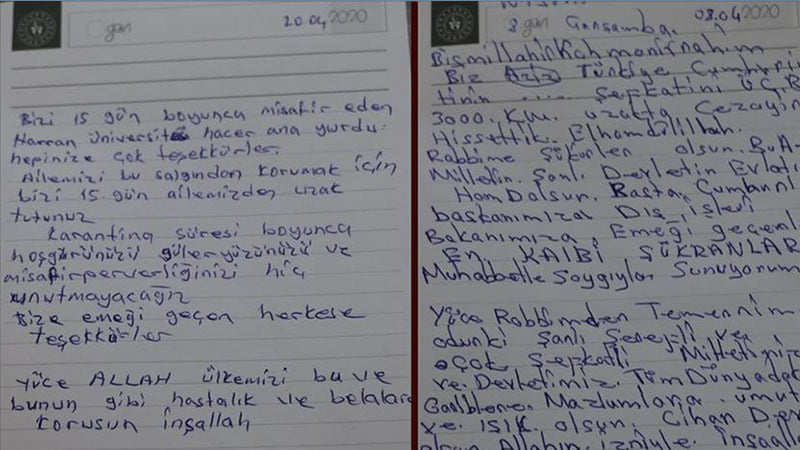 gün
20.04.2020
Bizi 15 gün boyunca misafir eden
Harran üniversite hacer ana yurdu.
hepinize çok teşekkürler.
Ailemizi bu salgından korumak için
bizi 15 gün ailemizden uzak
tutunuz
Karantina süresi boyunca
hoşgürünüzü güleryüzünüzü ve
misafirperverliğinizi hiç
unutmayacağız
Bize emeği geçen herkese
teşekkürler
Yüce ALLAH ülkemizi bu ve
bunun gibi hastalık ve belalard
korusun inşallah
8 gün Çarşamba. 08.04.2020
BismillahirRahmanirrahim
Biz Aziz Türkiye Cumhuri
tinin .... Şefkatini üç B
3000. Km. uzakta Cezayir
Hissettik. Elhamdülillah.
Rabbime Şükürler olsun. Bu A
Milletin. Şanlı Devletin Evlatı
Ham Dolsun. Başta. Cumhuri
başkanımıza Dış işleri
Bakanımıza. Emeği geçenl
En KALBİ ŞÜKRANLAR
Muhabbetle Saygıyla Sunuyorum
Yüce Rabbimden Temennim
odurki Şanlı Şerefli ve
çok Şefkatli Milletimiz
ve. Devletimiz. Tüm Dünyada
Mazlumlara umut
ve. IŞIK olsun. Cihan Dev
olsun Allahın izniyle inşaalla